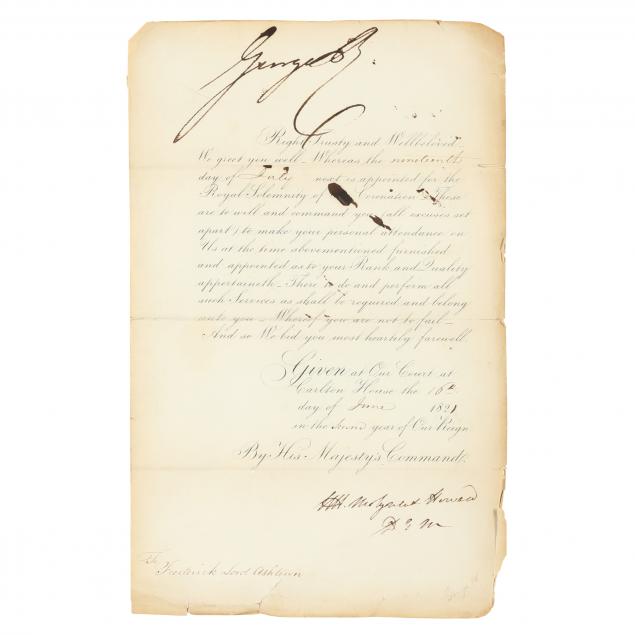 George R.
Right Trusty and Wellbeloved,
We greet you well_ Whereas the nineteenth
day of July next is appointed for the
Royal Solemnity of Coronation_ These
are to will and command you (all excuses set
apart) to make your personal attendance on
Us at the time abovementioned furnished
and appointed as to your Rank and Quality
appertaineth_ There to do and perform all
such Services as shall be required and belong
unto you_ Whereof you are not to fail_
And so We bid you most heartily farewell.
Given at Our Court at
Carlton House the 16th
day of June 1821
in the second year of Our Reign
By His Majesty's Command.
HH. Molyneux Howard
D E M
To
Frederick Lord Ashtown